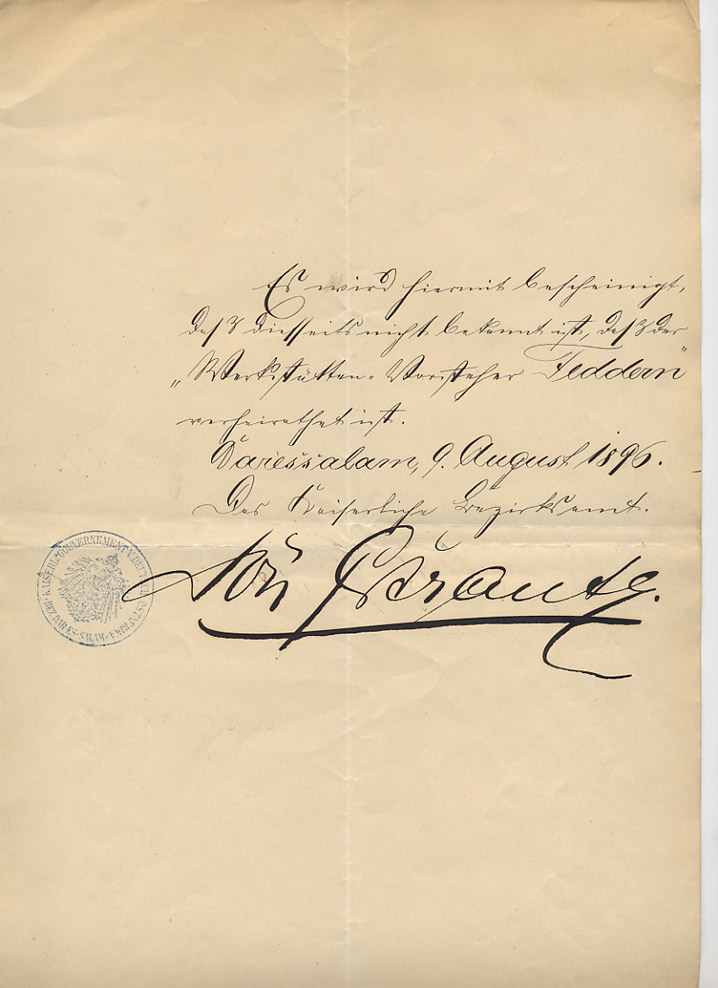 Es wird hiermit bescheinigt,
daß diesseits nicht bekannt ist, daß der
„Werkstätten-Vorsteher Feddern"
verheirathet ist.
Daressalam, 9. August 1896.
Das Kaiserliche Bezirksamt.
KAISERL. GOUVERNEMENT V. DEUTSCH
OSTAFRIKA
BEZ. DAR-ES-SALAM